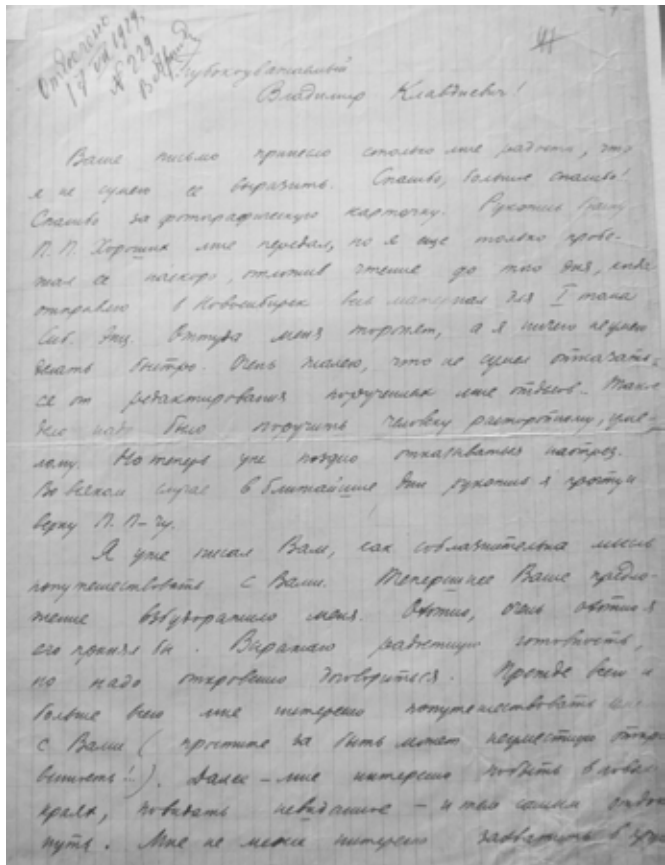 Отвечено
17 VII 1929.
№ 229
В. Арс
- 1 -
Глубокоуважаемый
Владимир Клавдиевич!
Ваше письмо принесло столько мне радости, что
я не сумею ее выразить. Спасибо, большое спасибо!
Спасибо за фотографическую карточку. Рукопись Вашу
П. П. Хороших мне передал, но я еще только пробе-
жал ее наскоро, отложив чтение до того дня, когда
отправлю в Новосибирск весь материал для I тома
Сиб. Энц. Оттуда меня торопят, а я ничего не умею
делать быстро. Очень жалею, что не сумел отказать-
ся от редактирования порученных мне отделов. Такое
дело надо было поручить человеку расторопному, уме-
лому. Но теперь уже поздно отказываться наотрез.
Во всяком случае в ближайшие дни рукопись я прочту и
верну П. П-чу.
Я уже писал Вам, как соблазнительна мысль
попутешествовать с Вами. Теперешнее Ваше предло-
жение взбудоражило меня. Охотно, очень охотно я
его принял бы. Выражаю радостную готовность,
но надо откровенно договориться. Прежде всего и
больше всего мне интересно попутешествовать
с Вами (простите за быть может неуместную откро-
венность!). Далее - мне интересно побыть в новых
краях, повидать невиданное - и тем самым отдох-
нуть. Мне не менее интересно захватить в